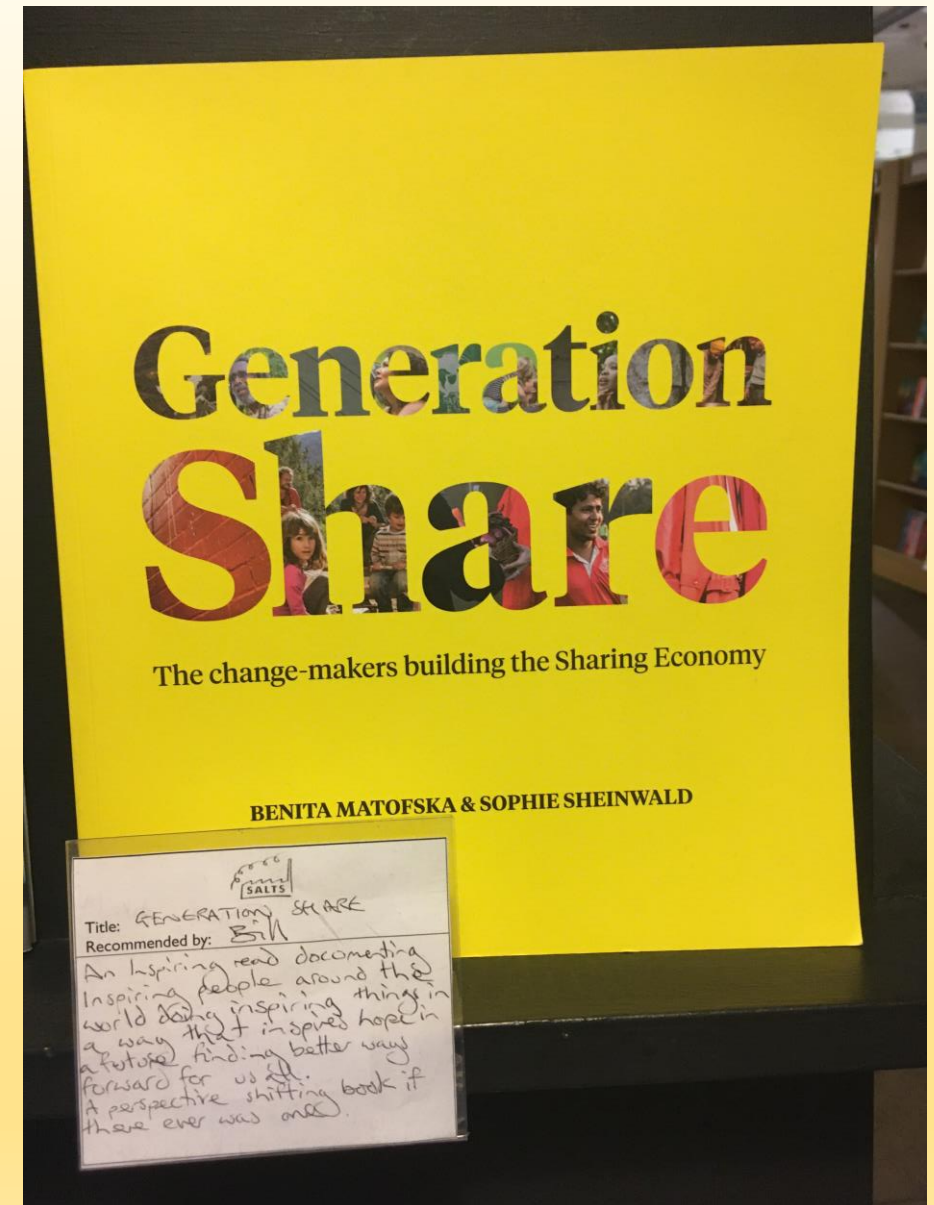 Generation
Share
The change-makers building the Sharing Economy
BENITA MATOFSKA & SOPHIE SHEINWALD
SALTS
Title: GENERATION SHARE
Recommended by: Bill
An Inspiring read documenting
Inspiring people around the
world doing inspiring things in
a way that inspires hope in
a future finding better ways
forward for us all.
A perspective shifting book if
there ever was one.